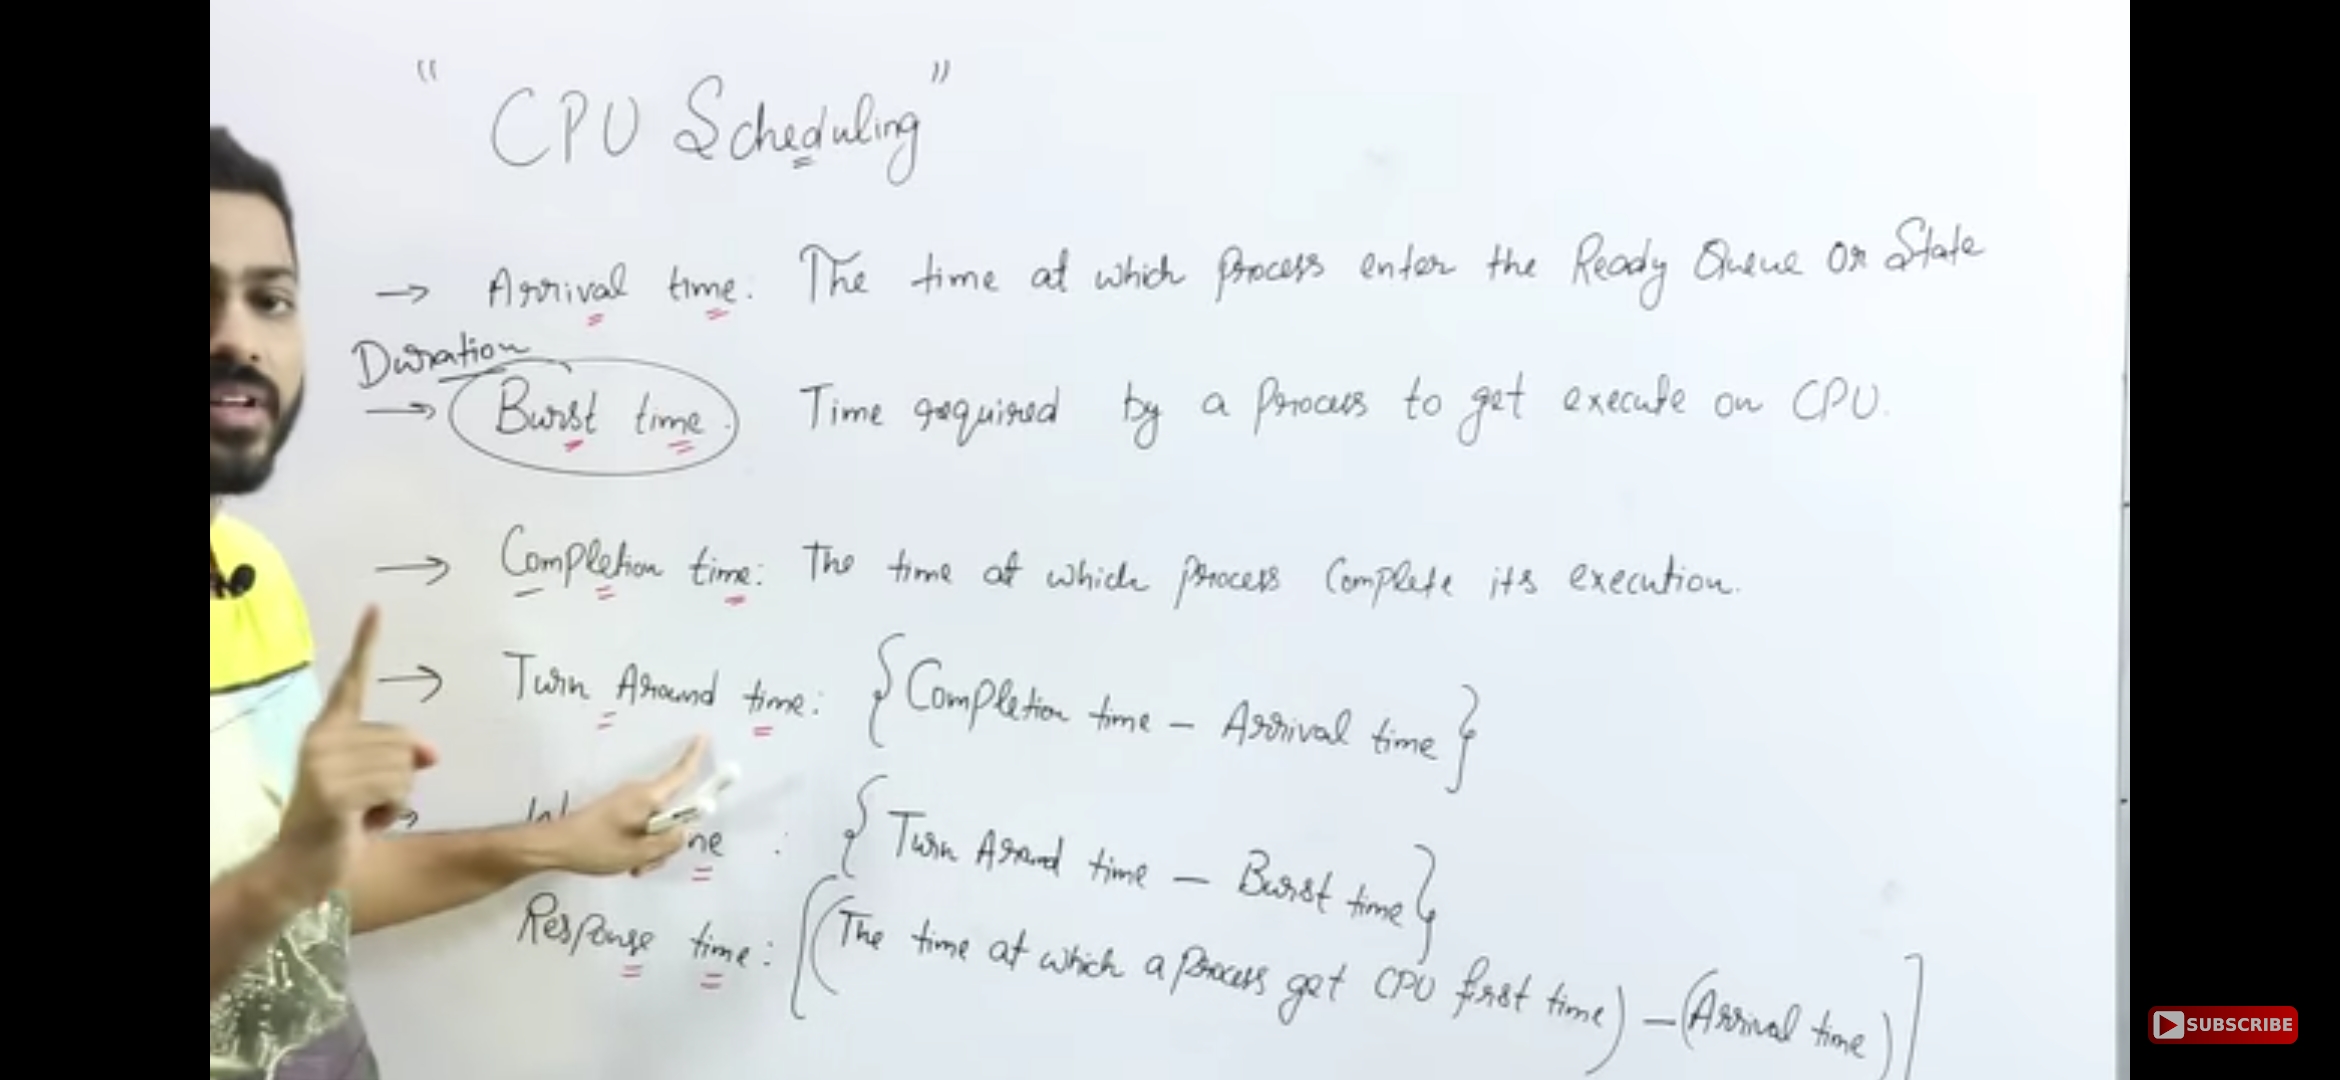 " CPU Scheduling "
→ Arrival time: The time at which process enter the Ready Queue or State
Duration
→ Burst time. Time required by a process to get execute on CPU.
→ Completion time: The time at which process Complete its execution.
→ Turn Around time: {Completion time - Arrival time}
: {Turn Around time - Burst time}
Response time: [(The time at which a process get CPU first time) - (Arrival time)]
SUBSCRIBE